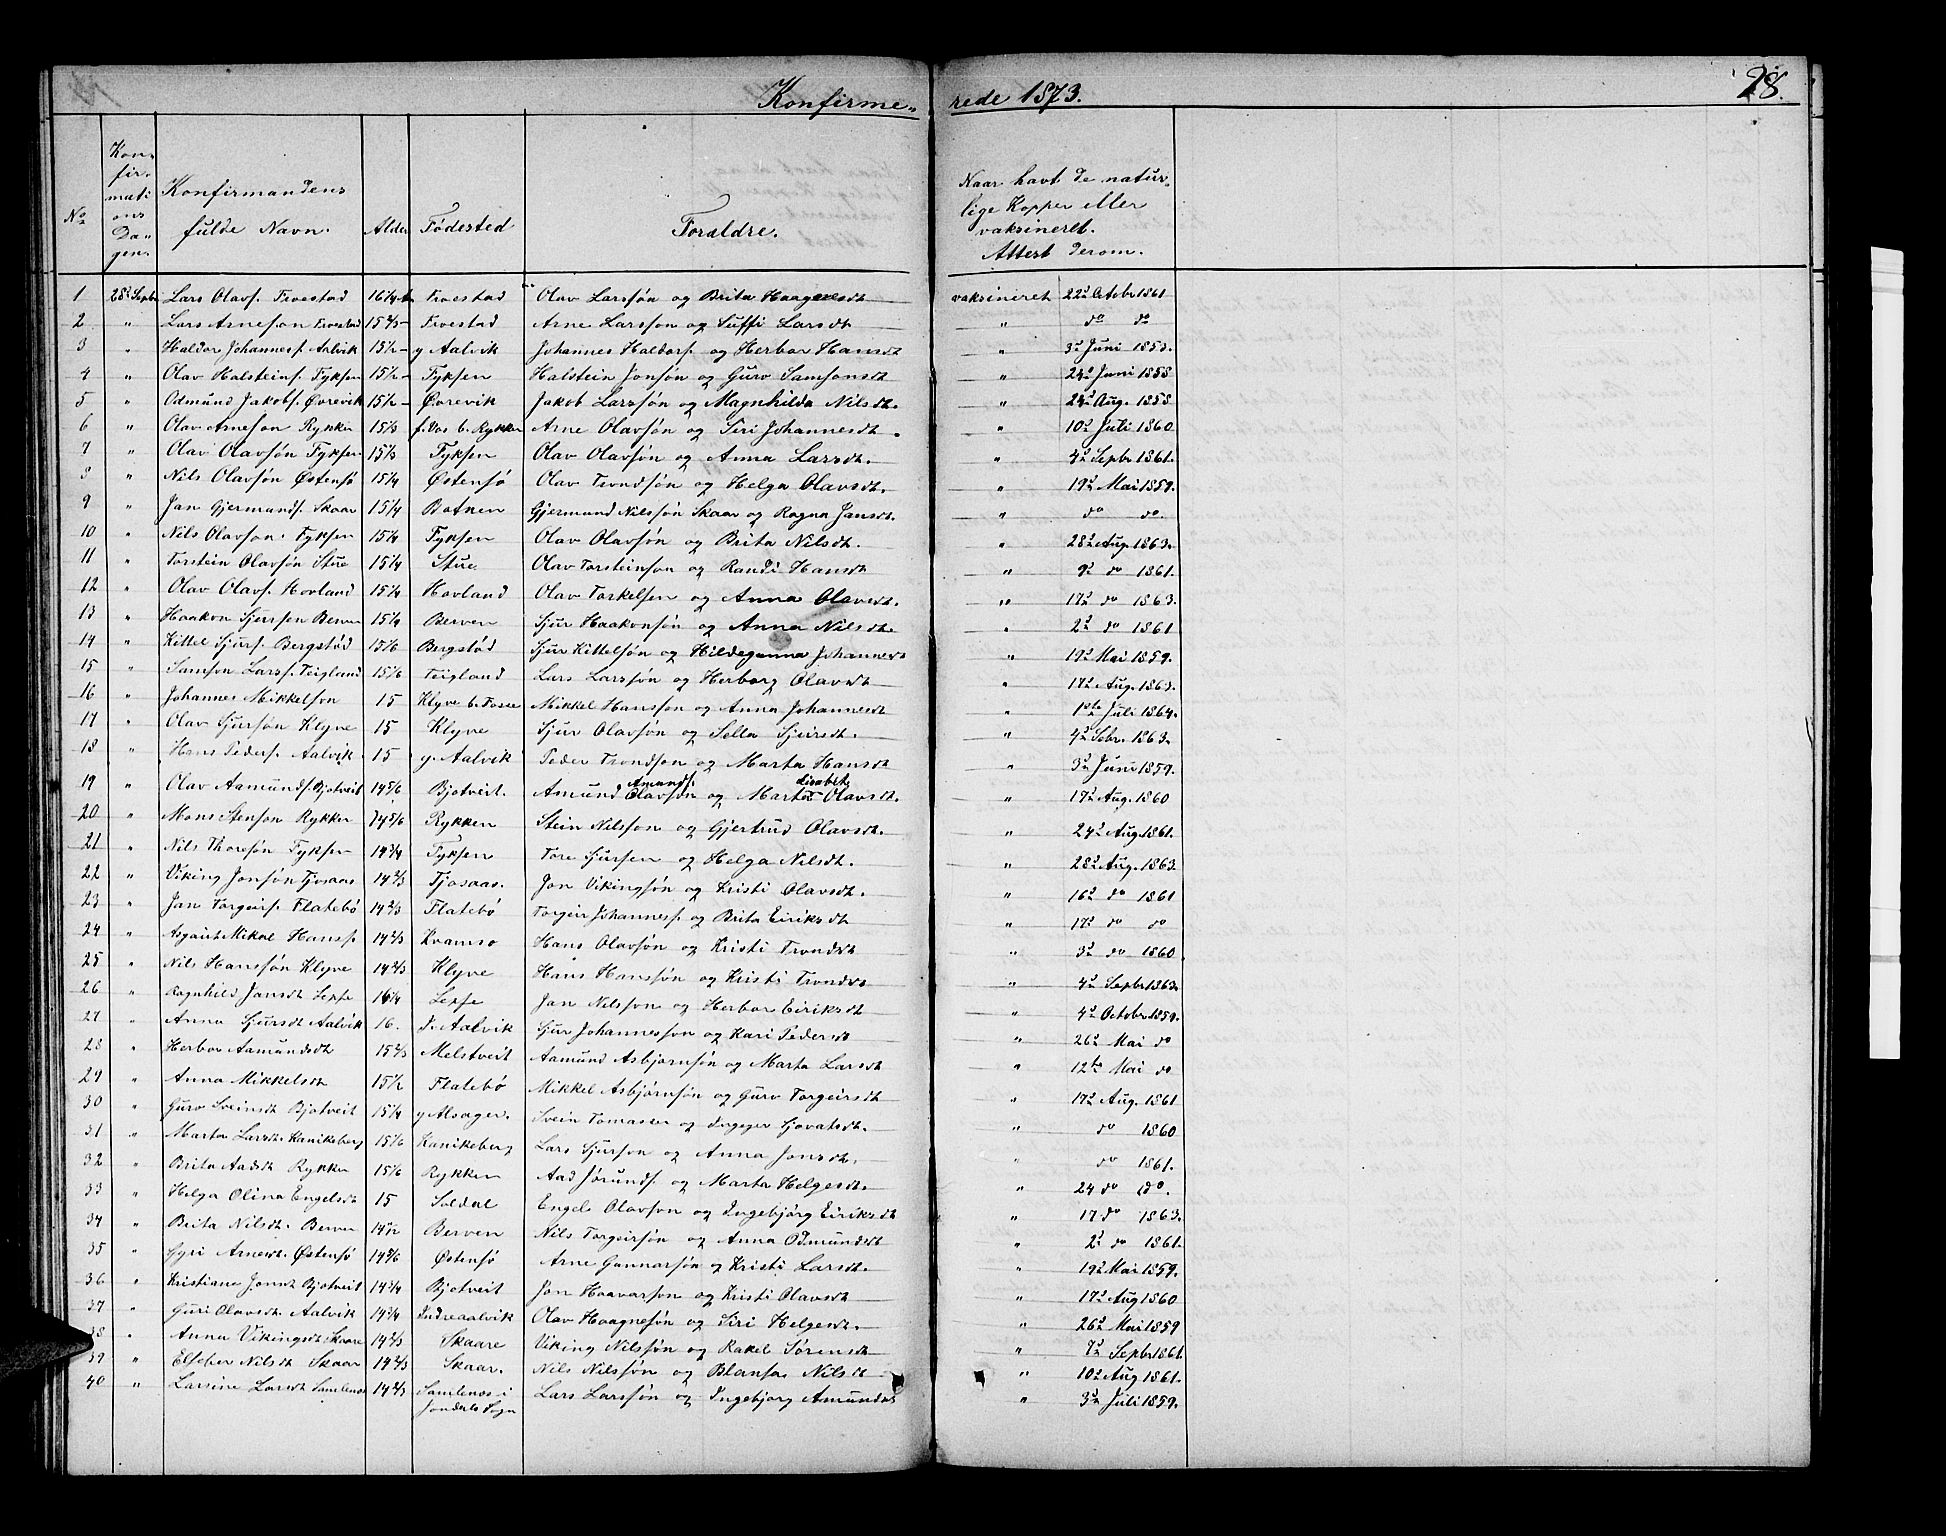 Konfirmerede 1873. 28.
No Konfirmationsdagen. Konfirmandens fulde Navn. Alder Fødested Foraldre. Naar havt de naturlige Kopper eller vaksineret. Attest derom.
1 28d Septbr Lars Olavs. Froestad 16 1/4 Froestad Olav Larssøn og Brita Haagensdt vaksineret 22d Octobr 1861
2 " Lars Arneson Froestad 15 2/3 Froestad Arne Larsson og Suffi Larsdt " do do
3 " Haldor Johanness. Aalvik 15 1/2 y Aalvik Johannes Haldors. og Herbor Hansdt " 3d Juni 1859.
4 " Olav Halsteins. Fyksen 15 1/2 Fyksen Halstein Jonsøn og Guro Samsonsdt " 24d Juni 1858
5 " Odmund Jakobs. Øvrevik 15 1/2 Øvrevik Jakob Larssøn og Magnhilda Nilsdt. " 24d Aug. 1858
6 " Olav Arneson Rykken 15 1/3 f. Vos b. Rykken Arne Olavsøn og Siri Johannesdt. " 10d Juli 1860
7 " Olav Olavsøn Fyksen 15 1/3 Fyksen Olav Olavsøn og Anna Larsdt. " 4d Septbr 1861.
8 " Nils Olavsøn Østensø 15 1/4 Østensø Olav Trondsøn og Helga Olavsdt. " 19d Mai 1859.
9 " Jan Gjermunds. Skaar 15 1/4 Botnen Gjermund Nilssøn Skaar og Ragna Jansdt. " do do.
10 " Nils Olavson. Fyksen 15 1/4 Fyksen Olav Olavsøn og Brita Nilsdt. " 28d Aug. 1863.
11 " Torstein Olavsøn Stue 15 1/4 Stue Olav Torsteinson og Randi Hansdt " 9d do 1861.
12 " Olav Olavs. Hovland 15 1/4 Hovland Olav Torkelsen og Anna Olavsdt. " 17d do 1863.
13 " Haakon Sjursson Berven 15 1/4 Berven Sjur Haakonsøn og Anna Nilsdt. " 2d do 1861
14 " Kittel Sjurs. Bergstød 15 1/6 Bergstød Sjur Kittelsøn og Hildeganna Johannesdt " 19d Mai 1859.
15 " Samson Larss. Teigland 15 1/6 Teigland Lars Larssøn og Herborg Olavsdt " 17d Aug. 1863.
16 " Johannes Mikkelson 15 Klyve b. Fosse Mikkel Hansson og Anna Johannesdt " 1ste Juli 1864.
17 " Olav Sjursøn Klyve 15 Klyve Sjur Olavsøn og Sella Sjursdt. " 4d Sebr. 1863.
18 " Hans Peders. Aalvik 15 y. Aalvik Peder Trondson og Marta Hansdt " 3d Juni 1859.
19 " Olav Aamunds. Bjotveit 14 5/6 Bjotveit. Asmund Olavsøn Amunds. og Marta Olavsdt. " 17d Aug. 1860
20 " Mons Stenson Rykken 14 5/6 Rykken Stein Nilsson og Gjertrud Olavsdt. " 24d Aug. 1861.
21 " Nils Thoresøn Fyksen 14 3/4 Fyksen Tore Sjursen og Helga Nilsdt. " 28d Aug. 1863.
22 " Viking Jonsøn Tjosaas 14 2/3 Tjosaas. Jon Vikingsøn og Kristi Olavsdt. " 16d do 1861
23 " Jan Torgeirs. Flatebø 14 2/3 Flatebø Torgeir Johanness. og Brita Eiriksdt " 17d do do
24 " Asgaut Mikal Hanss. 14 2/3 Kvamsø Hans Olavsøn og Kristi Trondsdt " 3d do 1860
25 " Nils Hanssøn Klyve 14 2/3 Klyve Hans Hanssøn og Kristi Trondsdt " 4d Septbr 1863.
26 " Ragnhild Jansdt Sepse 16 1/4 Sepse Jan Nilsson og Herbor Eiriksdt " 4d Octobr 1859.
27 " Anna Sjursdt Aalvik 16. I. Aalvik Sjur Johannesson og Kari Pedersdt " 26d Mai do
28 " Herbor Aamundsdt 15 2/3 Melstveit Aamund Asbjørnsøn og Marta Larsdt " 12te Mai do
29 " Anna Mikkelsdt 15 1/2 Flatebø Mikkel Asbjørnsøn og Guro Torgeirsdt " 17d Aug. 1861
30 " Guro Sveinsdt Bjotveit 15 1/4 y Alsager. Svein Tomassen og Ingeger Sjovatsdt. " do 1860
31 " Marta Larsdt Kanikeberg 15 1/6 Kanikeberg Lars Sjurson og Anna Jonsdt. " do 1861.
32 " Brita Aadsdt Rykken 15 1/6 Rykken Aad Jørunds. og Marta Helgesdt. " 24 do do.
33 " Helga Olina Engelsdt 15 Soldal Engel Olavson og Ingebjørg Eiriksdt " 17 do 1863.
34 " Brita Nilsdt. Berven 14 1/2 Berven Nils Torgeirsøn og Anna Odmundsdt " 2d do 1861.
35 " Gyri Arnesdt. Østensø 14 5/6 Østensø Arne Gunnarsøn og Kristi Larsdt. " 19d Mai 1859.
36 " Kristiane Jonsdt Bjotveit 14 3/4 Bjotveit Jon Haavarson og Kristi Olavsdt " 17d Aug 1860
37 " Guri Olavsdt. Aalvik 14 3/4 Indreaalvik Olav Haagnesøn og Siri Helgesdt. " 26d Mai 1859
38 " Anna Vikingsdt Skaare 14 2/3 Skaare Viking Nilssøn og Rakel Sørensdt " 7d Septbr 1861
39 " Elseber Nilsdt Skaar 14 2/3 Skaar. Nils Nilssøn og Blansa Nilsdt " 10d Aug 1861.
40 " Larsine Larsdt Samlenos 14 2/3 Samlenos i Jondals Sogn Lars Larssøn og Ingebjorg Amundsdt " 3d Juli 1859.